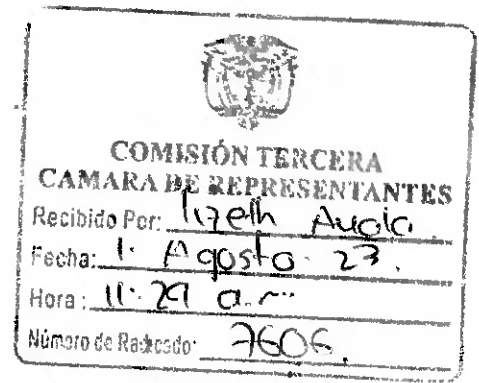 COMISIÓN TERCERA
CAMARA DE REPRESENTANTES
Recibido Por: lizeth
Fecha: 1. Agosto. 23.
Hora: 11:29 a.m
Número de Radicado: 7606.